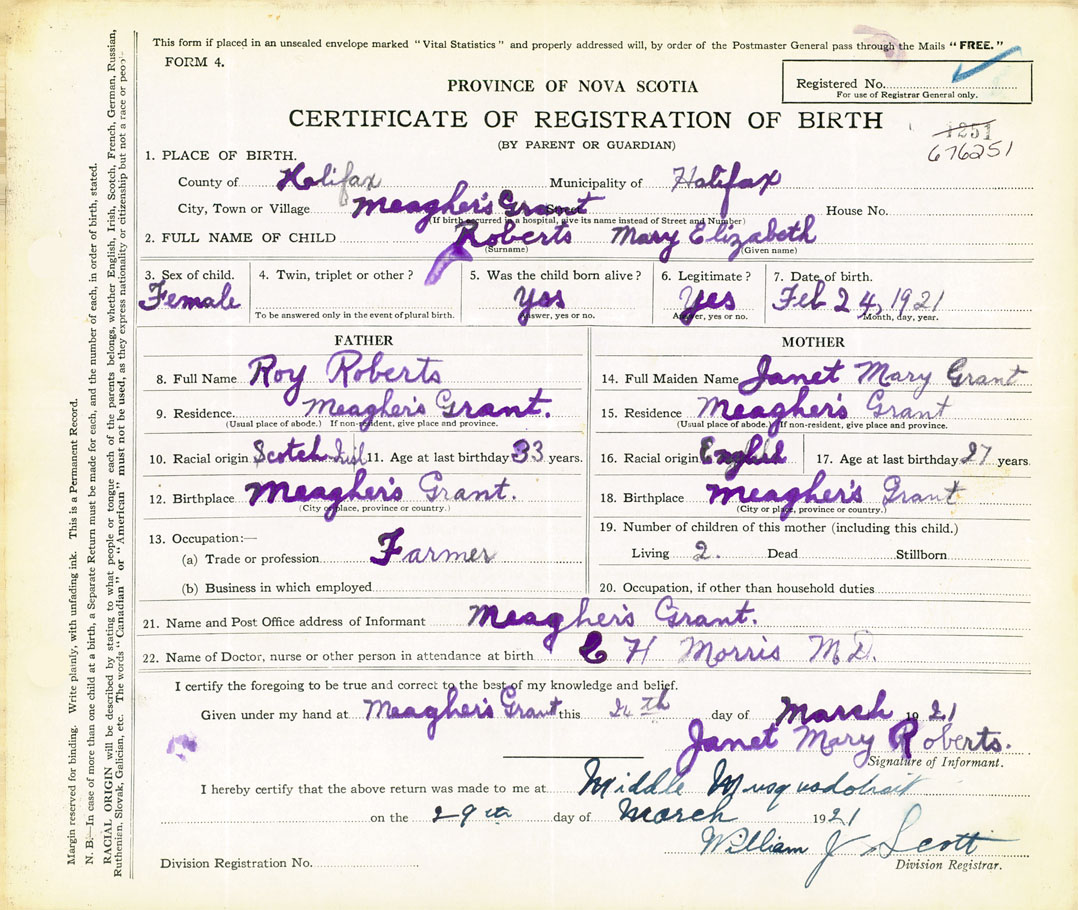 This form if placed in an unsealed envelope marked "Vital Statistics" and properly addressed will, by order of the Postmaster General pass through the Mails "FREE."
FORM 4.
Registered No.
For use of Registrar General only.
PROVINCE OF NOVA SCOTIA
CERTIFICATE OF REGISTRATION OF BIRTH
(BY PARENT OR GUARDIAN)
1251
676251
1. PLACE OF BIRTH.
County of Halifax Municipality of Halifax
City, Town or Village Meagher's Grant Street House No.
(If birth occurred in a hospital, give its name instead of Street and Number)
2. FULL NAME OF CHILD Roberts Mary Elizabeth
(Surname) (Given name)
3. Sex of child. 4. Twin, triplet or other? 5. Was the child born alive? 6. Legitimate? 7. Date of birth.
Female Yss Yes Feb 24, 1921
To be answered only in the event of plural birth. Answer, yes or no. Answer, yes or no. Month, day, year.
FATHER MOTHER
8. Full Name Roy Roberts 14. Full Maiden Name Janet Mary Grant
9. Residence. Meagher's Grant. 15. Residence Meagher's Grant
(Usual place of abode.) If non-resident, give place and province. (Usual place of abode.) If non-resident, give place and province.
10. Racial origin Scotch Irish 11. Age at last birthday 33 years. 16. Racial origin English 17. Age at last birthday 27 years
12. Birthplace Meagher's Grant. 18. Birthplace Meagher's Grant
(City or place, province or country.) (City or place, province or country.)
13. Occupation:— 19. Number of children of this mother (including this child.)
(a) Trade or profession Farmer Living 2. Dead Stillborn
(b) Business in which employed 20. Occupation, if other than household duties
21. Name and Post Office address of Informant Meagher's Grant.
22. Name of Doctor, nurse or other person in attendance at birth C H Morris M.D.
I certify the foregoing to be true and correct to the best of my knowledge and belief.
Given under my hand at Meagher's Grant this 24th day of March 1921
Janet Mary Roberts.
Signature of Informant.
I hereby certify that the above return was made to me at Middle Musquodoboit
on the 29th day of March 1921
William J Scott
Division Registration No. Division Registrar.
Margin reserved for binding. Write plainly, with unfading ink. This is a Permanent Record.
N. B.—In case of more than one child at a birth, a Separate Return must be made for each, and the number of each, in order of birth, stated.
RACIAL ORIGIN will be described by stating to what people or tongue each of the parents belongs, whether English, Irish, Scotch, French, German, Russian,
Ruthenian, Slovak, Galician, etc. The words "Canadian" or "American" must not be used, as they express nationality or citizenship but not a race or people